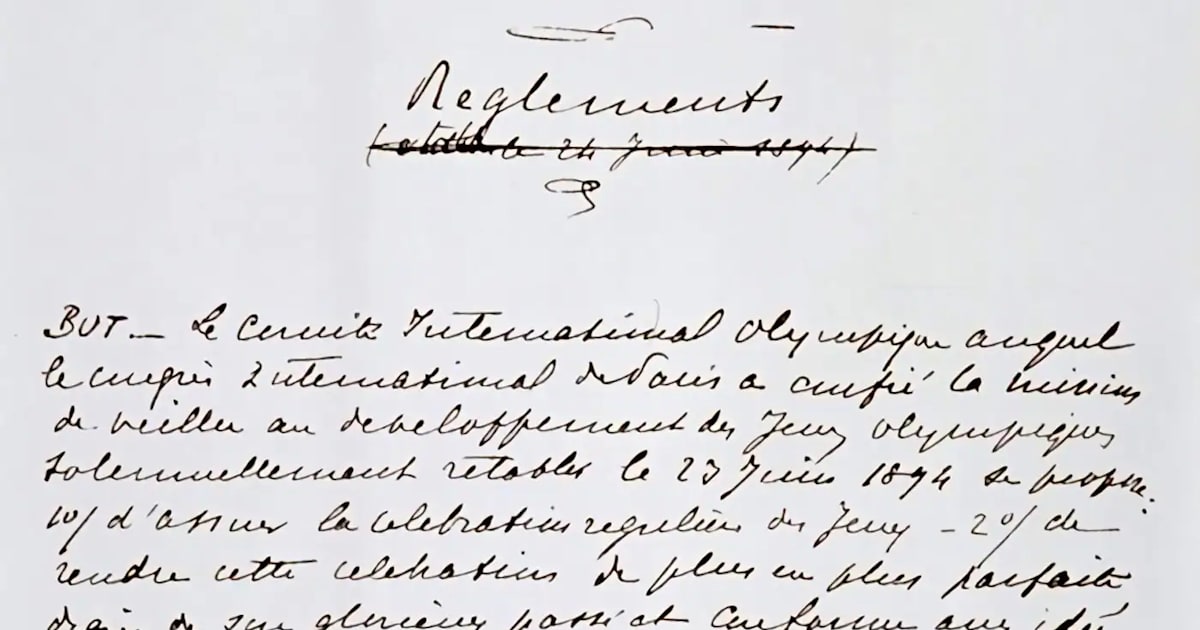 Reglements
(etabli le 24 Juin 1894)
BUT. — Le Comité International Olympique auquel
le congrès International de Paris a confié la mission
de veiller au developpement des Jeux olympiques
solennellement rétablis le 23 Juin 1894 se propose:
1º/ d'assurer la celebration regulière des Jeux — 2º/ de
rendre cette celebration de plus en plus parfaite,
digne de son glorieux passé et conforme aux idé